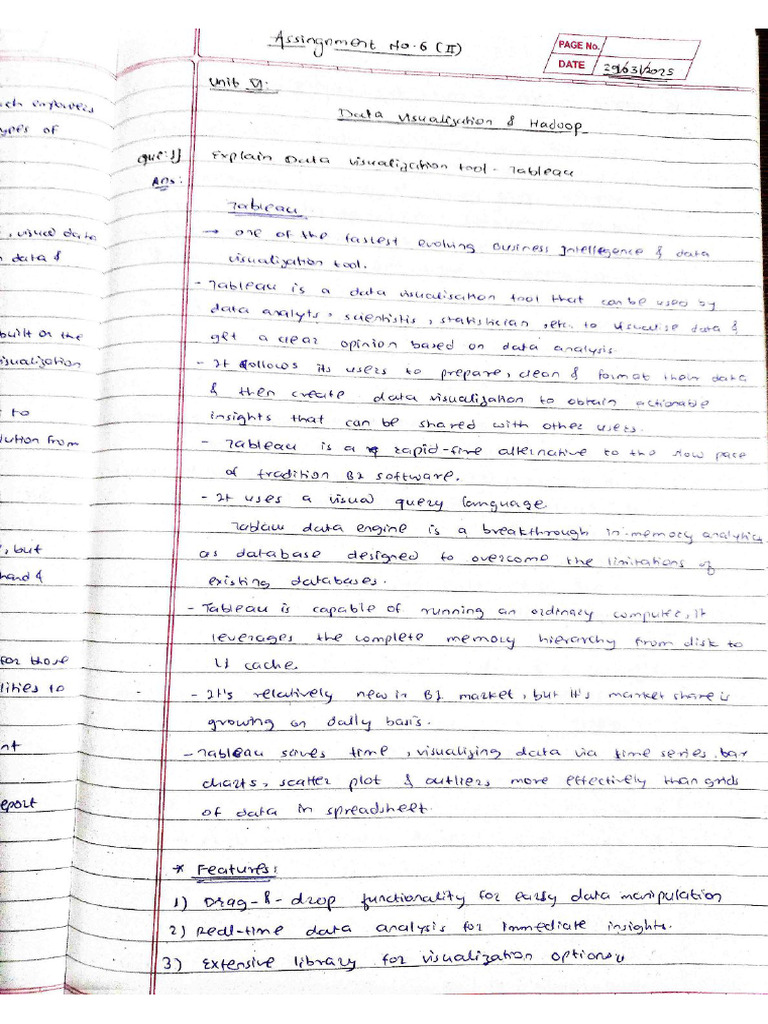 Assingnment No. 6 (II)
PAGE No.
DATE 29/03/2025
Unit VI:
Data Visualization & Hadoop
Que:1) Explain Data visualization tool - Tableau
Ans:
Tableau
→ one of the fastest evolving Business Intellegence & data
visualization tool.
- Tableau is a data visualisation tool that can be used by
data analyts, scientistis, statistician, etc. to visualise data &
get a clear opinion based on data analysis.
- It follows its users to prepare, clean & format their data
& then create data visualization to obtain actionable
insights that can be shared with other users.
- Tableau is a rapid-fire alternative to the slow pace
of tradition BI software.
- It uses a visual query language
Tablau data engine is a breakthrough in-memory analytics
as database designed to overcome the limitations of
existing databases.
- Tableau is capable of running an ordinary computer, it
leverages the complete memory hierarchy from disk to
L1 cache.
- It's relatively new in BI market, but it's market share is
growing on daily basis.
- Tableau saves time, visualizing data via time series, bar
charts, scatter plot & outliers more effectively than grids
of data in spreadsheet.
* Features:
1) Drag-&-drop functionality for easy data manipulation
2) Real-time data analysis for immediate insights.
3) Extensive library for visualization options
employees
types of
, visual data
data &
built on the
visualization
to
lution from
, but
hand &
for those
lities to
nt
eport